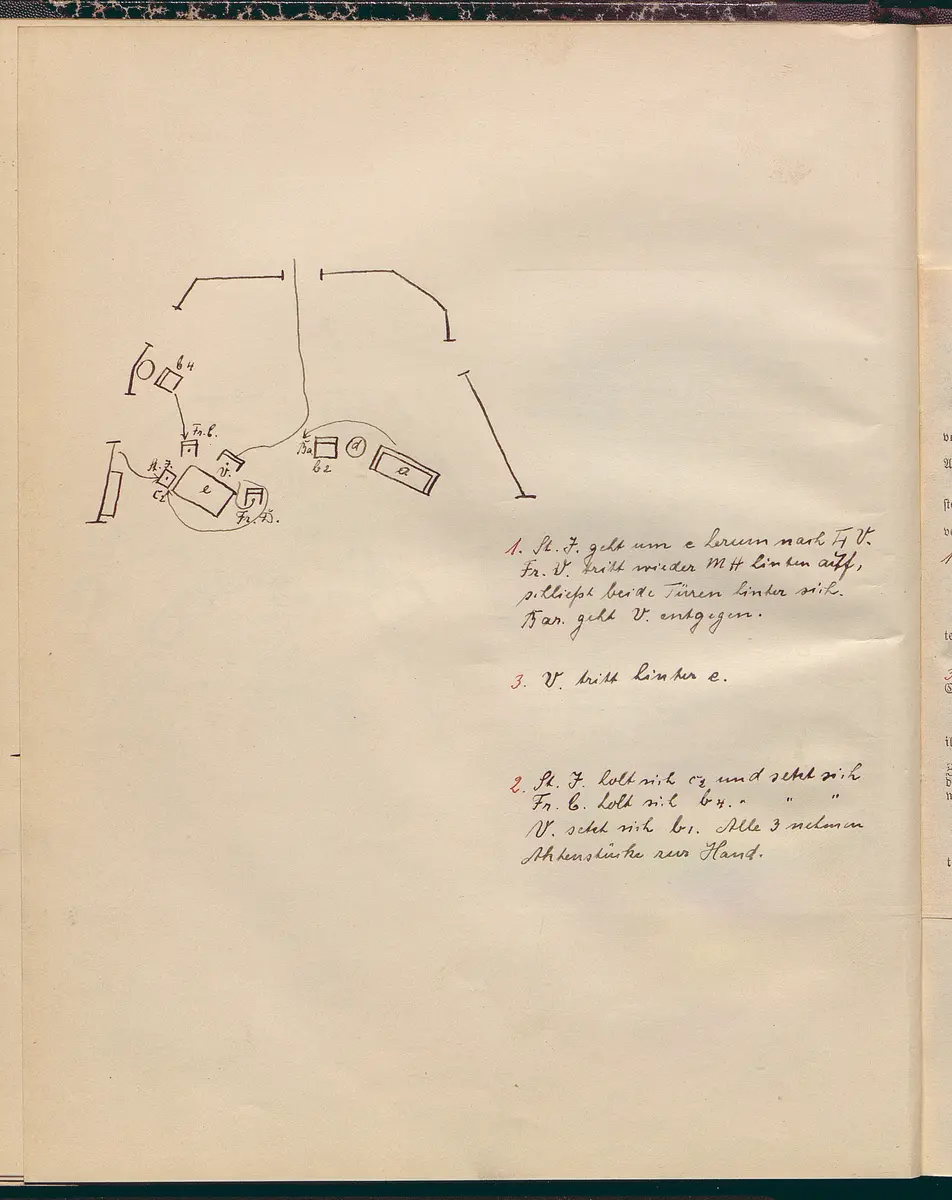 b 4
Fr. C.
St. F.
c2
V.
e
Fr. B.
Ba
b 2
d
a
1. St. F. geht um e herum nach V.
Fr. V. tritt wieder M H hinten auf,
schließt beide Türen hinter sich.
Bar. geht V. entgegen.
3. V. tritt hinter e.
2. St. F. holt sich c2 und setzt sich
Fr. C. holt sich b 4. " " "
V. setzt sich b1. Alle 3 nehmen
Aktenstücke zur Hand.